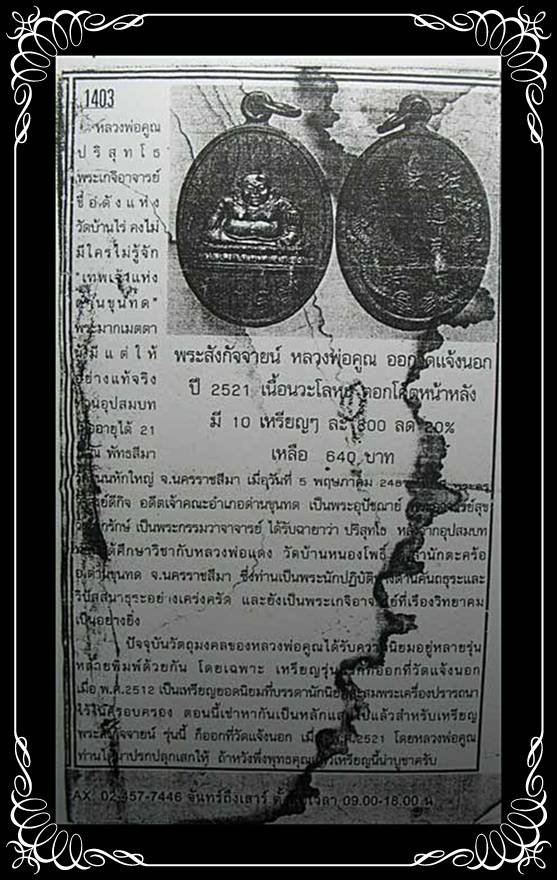 1403
หลวงพ่อคูณ
ปริสุทโธ
พระเกจิอาจารย์
ชื่อดังแห่ง
วัดบ้านไร่ คงไม่
มีใครไม่รู้จัก
"เทพเจ้าแห่ง
ด่านขุนทด"
พระมากเมตตา
มีแต่ให้
อย่างแท้จริง
อุปสมบท
อายุได้ 21
พัทธสีมา
พระสังกัจจายน์ หลวงพ่อคูณ ออกวัดแจ้งนอก
ปี 2521 เนื้อนวะโลหะ ตอกโค๊ตหน้าหลัง
มี 10 เหรียญๆ ละ 800 ลด 20%
เหลือ 640 บาท
ถนนหักใหญ่ จ.นครราชสีมา เมื่อวันที่ 5 พฤษภาคม
อดีตเจ้าคณะอำเภอด่านขุนทด เป็นพระอุปัชฌาย์
เป็นพระกรรมวาจาจารย์ ได้รับฉายาว่า ปริสุทโธ หลังจากอุปสมบท
ได้ศึกษาวิชากับหลวงพ่อแดง วัดบ้านหนองโพธิ์ ตำบลสำนักตะคร้อ
อ.ด่านขุนทด จ.นครราชสีมา ซึ่งท่านเป็นพระนักปฏิบัติทางด้านคันถธุระและ
วิปัสสนาธุระอย่างเคร่งครัด และยังเป็นพระเกจิอาจารย์ที่เรืองวิทยาคม
เป็นอย่างยิ่ง
ปัจจุบันวัตถุมงคลของหลวงพ่อคูณได้รับความนิยมอยู่หลายรุ่น
หลายพิมพ์ด้วยกัน โดยเฉพาะ เหรียญรุ่นแรกที่ออกที่วัดแจ้งนอก
เมื่อ พ.ศ.2512 เป็นเหรียญยอดนิยมที่บรรดานักนิยมสะสมพระเครื่องปรารถนา
ไว้ในครอบครอง ตอนนี้เช่าหากันเป็นหลักแสนไปแล้วสำหรับเหรียญ
พระสังกัจจายน์ รุ่นนี้ ก็ออกที่วัดแจ้งนอก เมื่อ พ.ศ.2521 โดยหลวงพ่อคูณ
ท่านได้มาปรกปลุกเสกให้ ถ้าหวังพึ่งพุทธคุณแล้วเหรียญนี้น่าบูชาครับ
AX. 02-457-7446 จันทร์ถึงเสาร์ ตั้งแต่เวลา 09.00-18.00 น